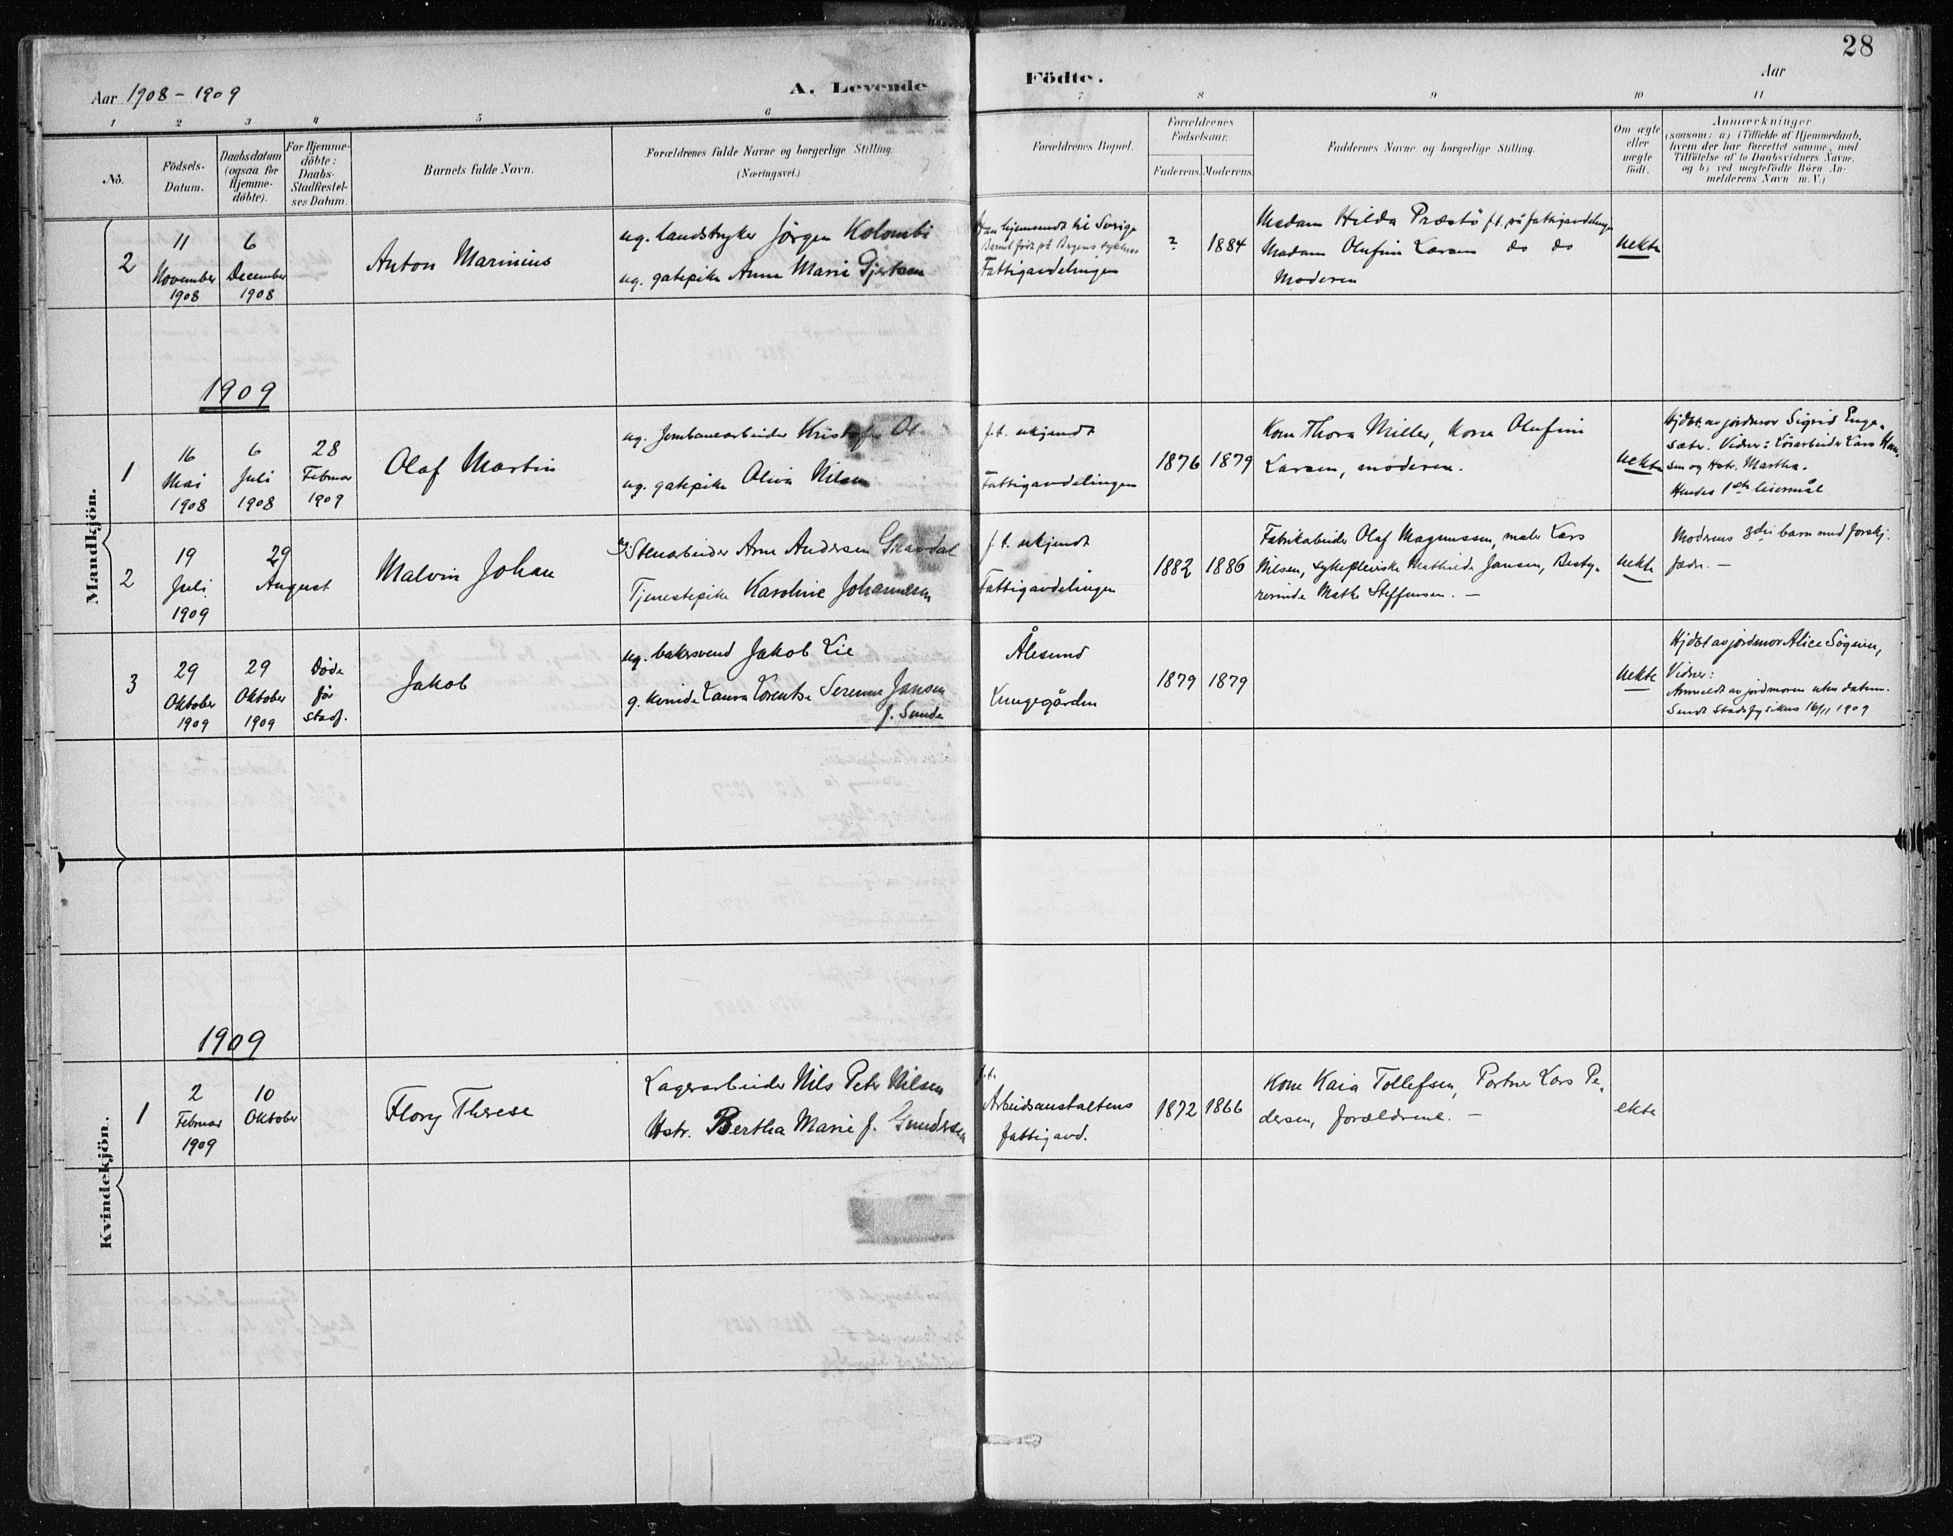 28
Aar 1908 - 1909
A. Levende
Födte.
Aar
1 2 3 4 5 6 7 8 9 10 11
No.
Födsels-
Datum.
Daabsdatum
(ogsaa for
Hjemme-
döbte).
For Hjemme-
döbte:
Daabs-
Stadfæstel-
ses Datum.
Barnets fulde Navn.
Forældrenes fulde Navne og borgerlige Stilling.
(Næringsvei.)
Forældrenes Bopæl.
Forældrenes
Födselsaar.
Faderens. Moderens.
Faddernes Navne og borgerlige Stilling.
Om ægte
eller
uægte
födt.
Anmærkninger
(saasom: a) i Tilfælde af Hjemmedaab,
hvem der har forrettet samme, med
Tilföielse af to Daabsvidners Navne.
og b) ved uægtefödte Börn An-
melderens Navn m. V.)
Mandkjön.
2
11
November
1908
6
December
1908
Anton Marinius
ug. landstryker Jörgen Kolombi
ug. gatepike Anne Marie Gjertsen
Han hjemsendt til Sverige
Barnet född på Bergens sykehus
Fattigavdelingen
? 1884
Madam Hilda Præstö f.t. på fattigavdelingen
Madam Olufine Larsen do do
Moderen
Uekte
1909
1
16
Mai
1908
6
Juli
1908
28
Februar
1909
Olaf Martin
ug. Jernbanearbeider Kristofer
ug. gatepike Oliva Nilsen
f.t. ukjendt
Fattigavdelingen
1876 1879
Kone Thora Miller, Kone Olufine
Larsen, moderen.
Uekte
Hjdöbt av jordmor Sigrid Enge-
sæter. Vidner: Lösarbeider Lars Han-
sen og Hstr. Martha.
Hendes 1ste leiermål
2
19
Juli
1909
29
August
Malvin Johan
Stenarbeider Arne Andersen Gravdal
Tjenestepike Karoline Johannesen
f.t. ukjendt
Fattigavdelingen
1882 1886
Fabrikarbeider Olaf Magnussen, maler Lars
Nilsen, sykepleierske Mathilde Jansen, Besty-
rerinde Mathe Steffensen. -
Uekte
Moderens 3die barn med forskj.
fædre. -
3
29
Oktober
1909
29
Oktober
1909
Död
för
stadf.
Jakob
ug. bakersvend Jakob Lie
g. kvinde Laura Lorentse Serenne Jansen
f. Sunde
Ålesund
Kungegården
1879 1879
Uekte
Hjdöbt av jordmor Alice Sögnen,
Vidner:
Anmeldt av jordmoren uten datum.
Sendt Stadsfysikus 16/11 1909
Kvindekjön.
1909
1
2
Februar
1909
10
Oktober
Flory Therese
Lagerarbeider Nils Peter Nilsen
Hstr. Bertha Marie f. Gundersen
f.t.
Arbeidsanstaltens
fattigavd.
1872 1866
Kone Kaia Tollefsen, Portner Lars Pe-
dersen, forældrene. -
ekte